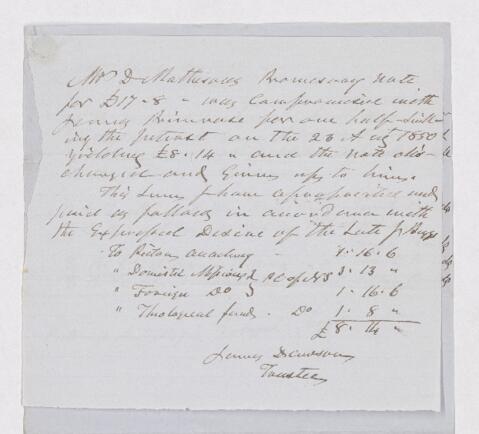 Mr D Mathesons Promesory Note
for £17-8 - was Compromised with
James Primrose for one half - 
ing the Intrest on the 23 Augt 1850
yielding £8.14 " and the note dis-
charged and Given up to him.
This Sum I have appropriated and
paid as follows in accordance with
the Expressed Desire of the Late J
To Pictou Academy - 1.16.6
" Domestic Missions P C of NS 3.13 "
" Foreign Do 1.16.6
" Theological fund . Do 1.8 "
£8.14 "
James Dawson
Trustee